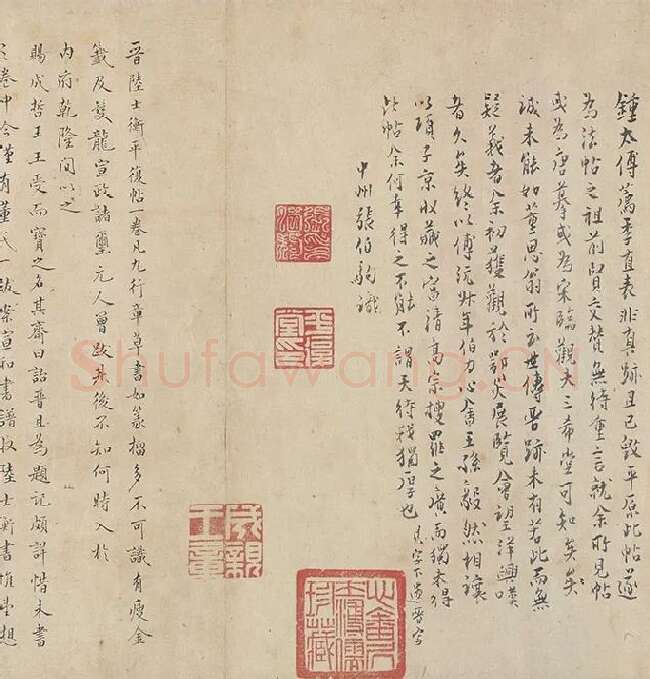 鍾太傅薦季直表非真跡且已毀平原此帖遂
為法帖之祖前賢交贊無待重言就余所見帖
或為唐摹或為宋臨觀夫三希堂可知矣矣
誠未能如董思翁所云世傳晉跡未有若此而無
疑義者余初獲觀於鄂災展覽會望洋興嘆
者久矣終以傅沅叔年伯力心畬王孫毅然相讓
以項子京收藏之富清高宗搜羅之廣而獨未得
此帖余何幸得之不能不謂天待我獨厚也
見字下遺晉字
中州張伯駒識
成親王章
晉陸士衡平復帖一卷凡九行章草書如篆籀多不可識有瘦金
籤及雙龍宣政諸璽元人曾跋其後不知何時入於
內府乾隆間以之
賜成哲王王受而寶之名其齋曰詒晉且為題記頗詳惜未書
卷中今僅有董氏一跋案宣和書譜收陸士衡書惟想
Shufawang.CN